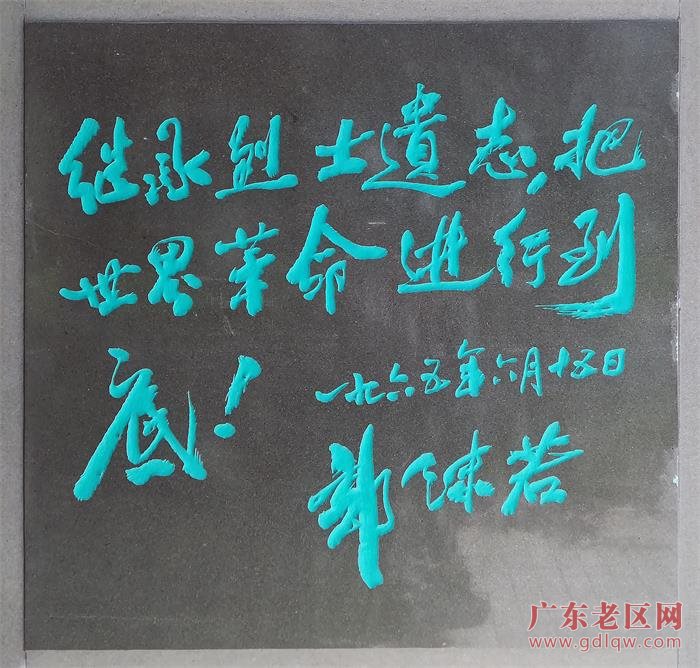 继承烈士遺志,把
世界革命進行到
底!
一九六五年六月十五日
郭沫若
广东老区网
www.gdlqw.com